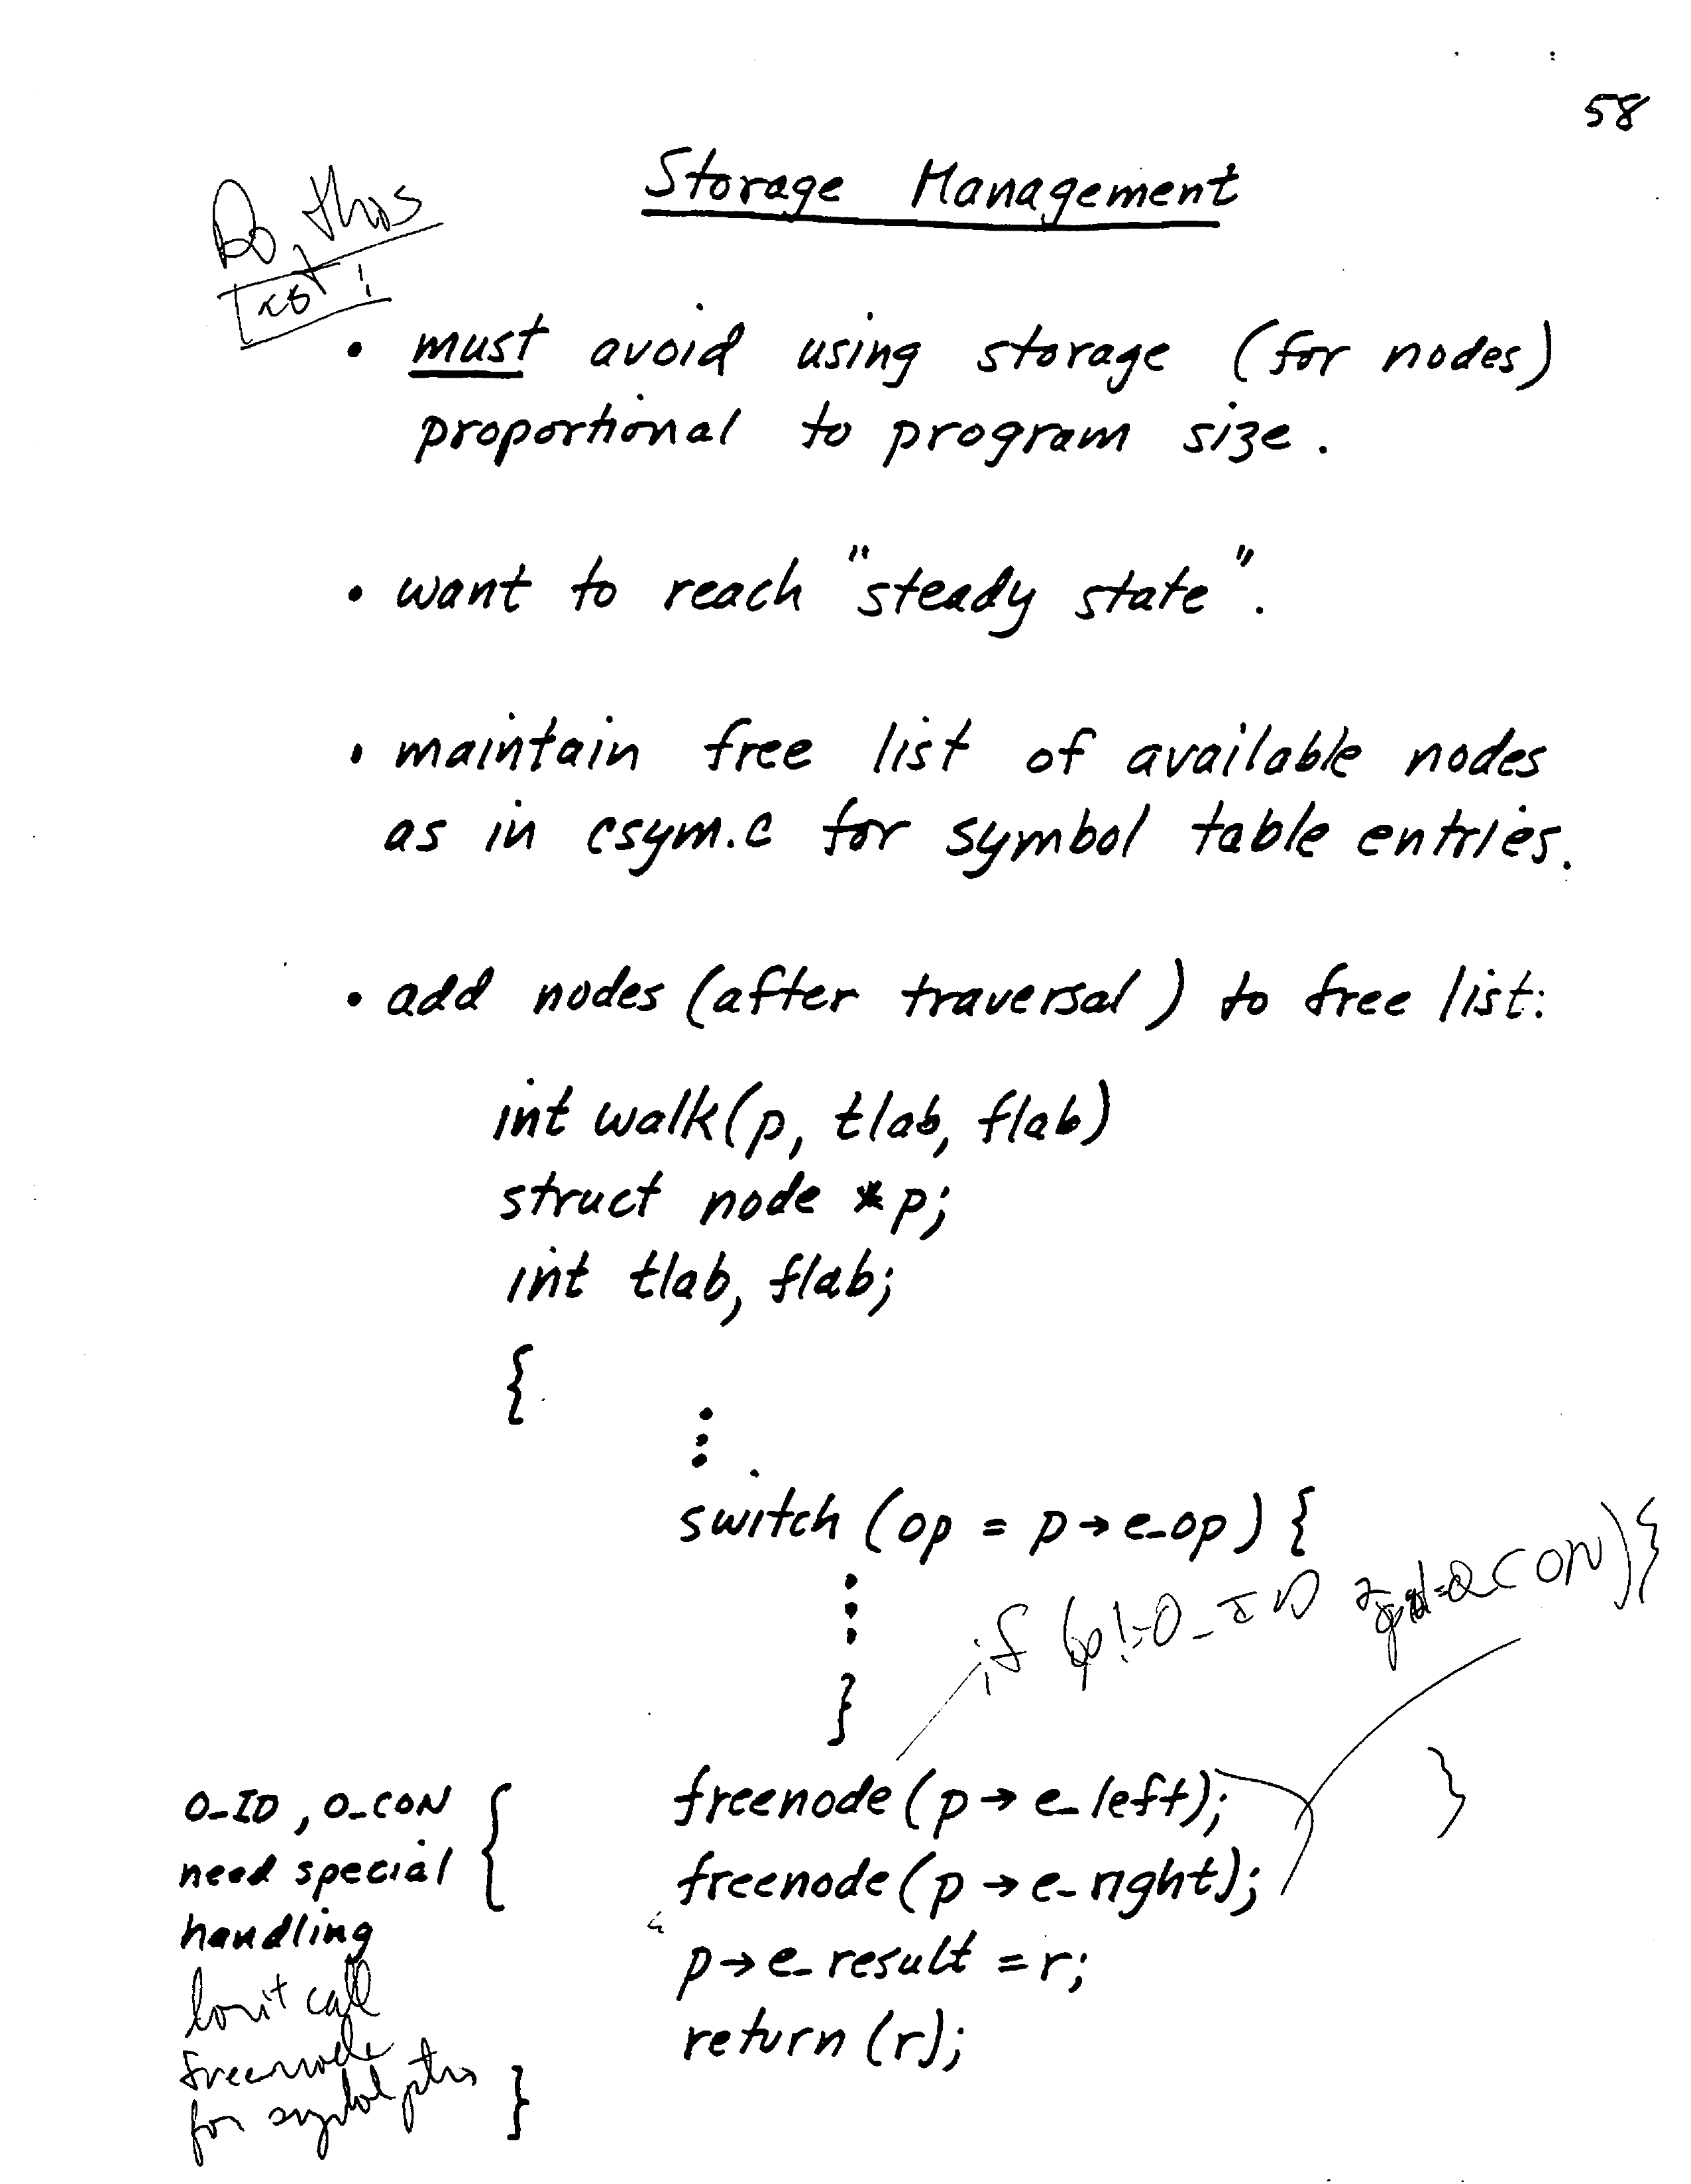 58
Storage Management
Do this
• must avoid using storage (for nodes)
proportional to program size.
• want to reach "steady state".
• maintain free list of available nodes
as in csym.c for symbol table entries.
• add nodes (after traversal) to free list:
int walk(p, tlab, flab)
struct node *p;
int tlab, flab;
{
⋮
switch (op = p→e_op) {
⋮
if (op != O_ID && op != O_CON) {
}
freenode(p→e_left); }
freenode(p→e_right);
p→e_result = r;
return (r);
O_ID, O_CON {
need special
handling
don't call
freenode
for symbol ptrs
}